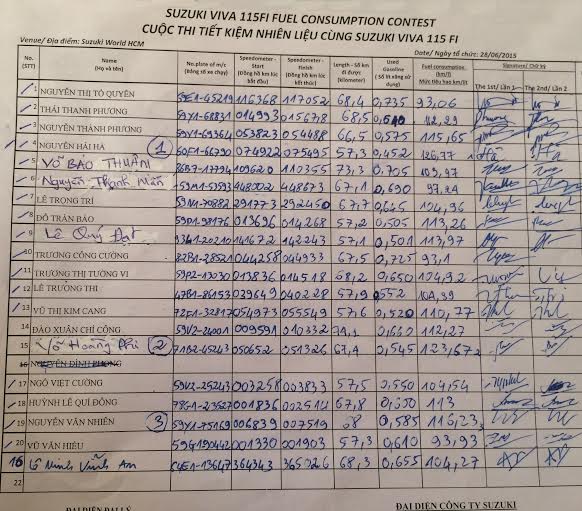 SUZUKI VIVA 115FI FUEL CONSUMPTION CONTEST
CUỘC THI TIẾT KIỆM NHIÊN LIỆU CÙNG SUZUKI VIVA 115 FI
Venue/ Địa điểm: Suzuki World HCM Date/ Ngày tổ chức: 28/06/2015
No. (STT) Name (Họ và tên) No.plate of m/c (Bảng số xe chạy) Speedometer - Start (Đồng hồ km lúc bắt đầu) Speedometer - Finish (Đồng hồ km lúc kết thúc) Length - Số km đi được (kilometer) Used Gasoline (Số lít xăng sử dụng) Fuel consumption (km/l) Mức tiêu hao km/lít Signature/ Chữ ký The 1st/ Lần 1 The 2nd/ Lần 2
1 NGUYỄN THỊ TỐ QUYÊN 116368 117052 68,4 0,735 93,06
2 THÁI THANH PHƯƠNG 59Y1-68831 014993 015678 68,5 0,610 112,29
3 NGUYỄN THÀNH PHƯƠNG 59V1-69364 053823 054488 66,5 0,575 115,65
4 NGUYỄN HẢI HÀ 1 60F1-66790 074922 075495 57,3 0,452 126,77
5 VÕ BẢO THUẬN 86B7-17794 109620 110355 73,3 0,705
6 Nguyễn Thanh Mẫn 448002 448673 67,1 0,690 97,24
7 LÊ TRỌNG TRÍ 59N1-70882 291773 292450 67,7 0,645 104,96
8 ĐỖ TRẦN BẢO 59D1-98176 013696 014268 57,2 0,505 113,26
9 Lê Quý Đạt 141672 142243 57,1 0,501 113,97
10 TRƯƠNG CÔNG CƯỜNG 82B1-28521 044258 044933 67,5 0,725 93,1
11 TRƯƠNG THỊ TƯỜNG VI 59P2-13030 013836 014518 68,2 0,650 104,92
12 LÊ TRƯỜNG THI 47B1-86153 039649 040228 57,9 0,552 104,89
13 VŨ THỊ KIM CANG 72E1-32817 054973 055549 57,6 0,520 110,77
14 ĐÀO XUÂN CHÍ CÔNG 59V2-24001 009591 010332 74,1 0,660 112,27
15 Võ Hoàng Phi 2 71B2-45243 050652 051326 67,4 0,545 123,67
16 NGUYỄN ĐÌNH PHONG
17 NGÔ VIỆT CƯỜNG 59V2-25243 003258 003833 57,5 0,550 104,54
18 HUỲNH LÊ QUÍ ĐÔNG 001836 002514 67,8 0,600 113
19 NGUYỄN VĂN NHIÊN 3 59Y1-75169 006839 007519 68 0,585 116,23
20 VŨ VĂN HIẾU 59G1-90442 001330 001903 57,3 0,610 93,93
16 Lê Minh Vĩnh An C4E1-13647 364343 365026 68,3 0,655 104,27
22
ĐẠI DIỆN ĐẠI LÝ ĐẠI DIỆN CÔNG TY SUZUKI